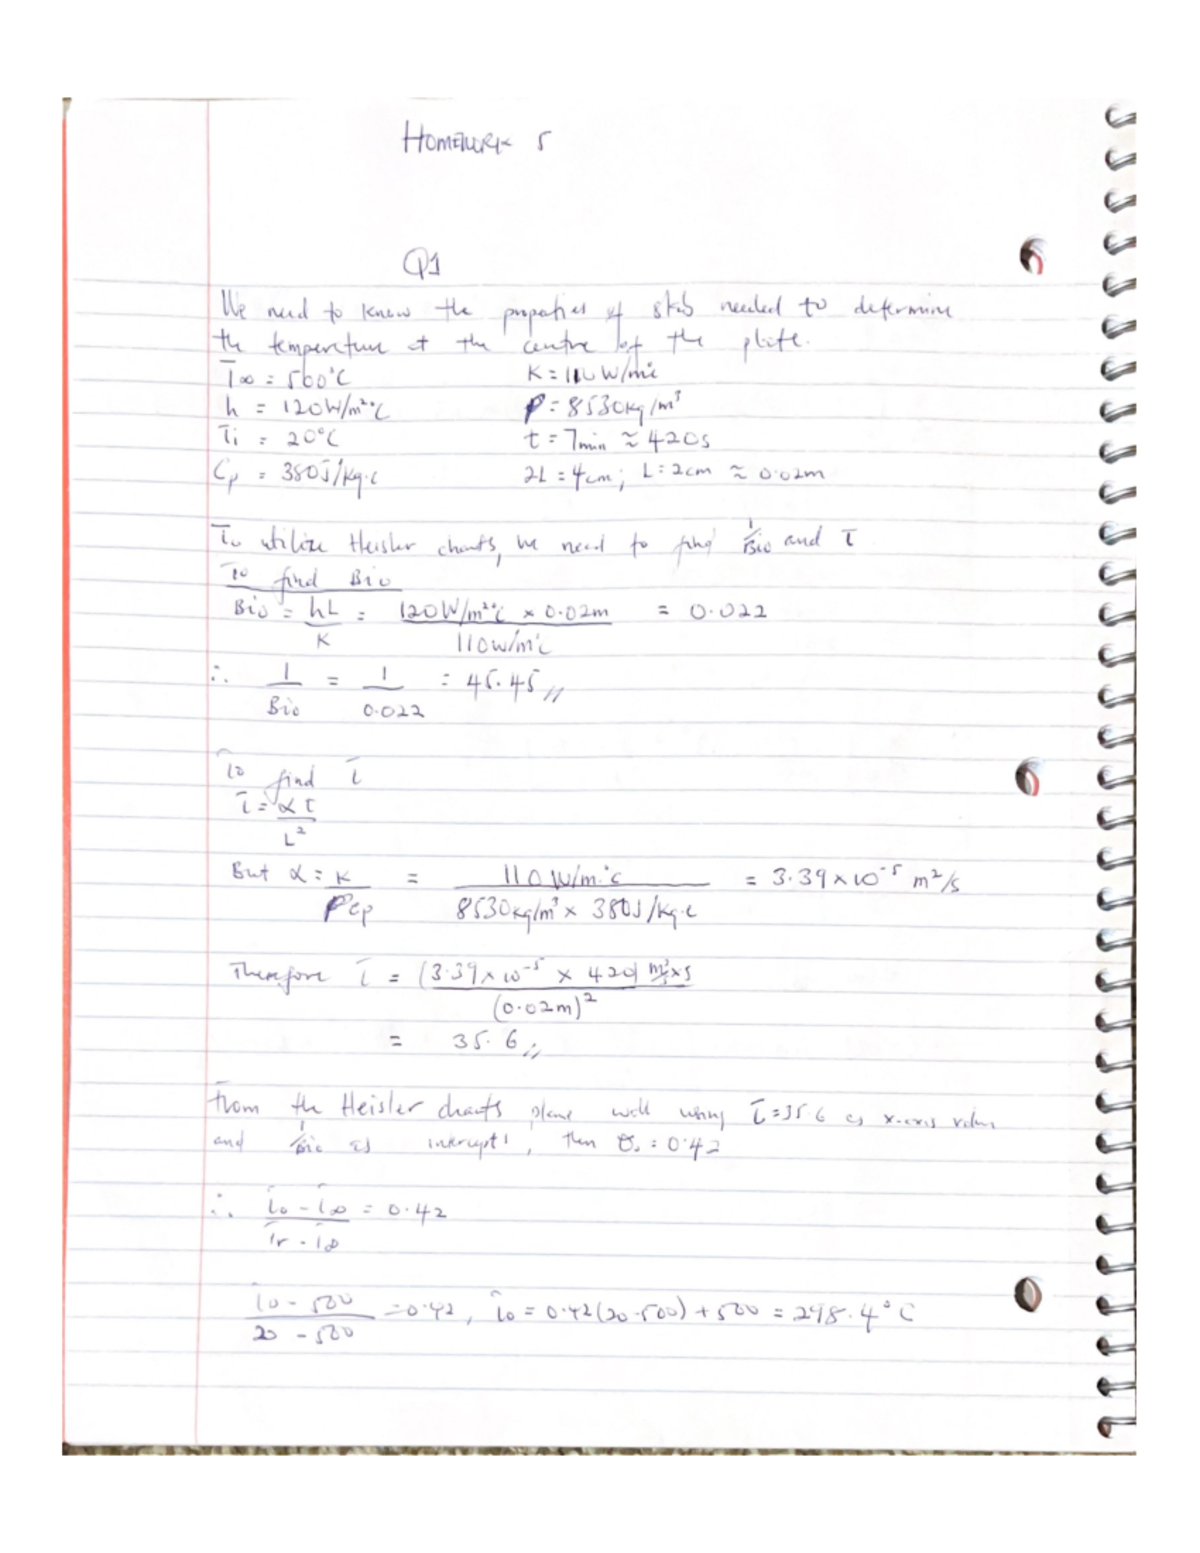 HOMEWORK 5
Q1
We need to know the properties of slab needed to determine
the temperature at the centre of the plate.
T∞ = 500°C K = 110 W/m°c
h = 120W/m²°C ρ = 8530kg/m³
Ti = 20°C t = 7min ≈ 420s
Cp = 380J/kg·c 2L = 4cm; L = 2cm ≈ 0.02m
To utilize Heisler charts, we need to find 1/Bio and τ
To find Bio
Bio = hL/K = 120W/m²°C × 0.02m / 110w/m°c = 0.022
∴ 1/Bio = 1/0.022 = 45.45 //
To find τ
τ = αt/L²
But α = K/ρcp = 110 W/m.°c / 8530kg/m³ × 380J/kg·c = 3.39×10⁻⁵ m²/s
Therefore τ = (3.39×10⁻⁵ × 420) m²/s×s / (0.02m)²
= 35.6 //
From the Heisler charts plane wall using τ=35.6 as x-axis value
and 1/Bio as intercept, then θ₀ = 0.42
∴ To - T∞ / Ti - T∞ = 0.42
To - 500 / 20 - 500 = 0.42, To = 0.42(20-500) + 500 = 298.4°C